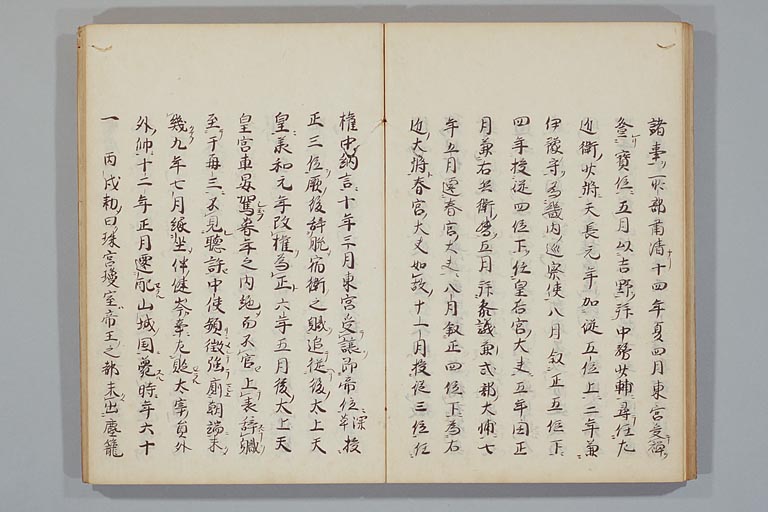 諸事一少部甫清十四年夏四月東宮受禅
登寶位五月以吉野拝中務少輔尋任左
近衛少将天長元年加従五位上二年兼
伊豫守為畿内巡察使八月叙正五位下
四年授従四位下任皇后宮大夫五年因正
月兼右兵衛督五月拝参議兼式部大輔七
年五月遷春宮大夫八月叙正四位下為右
近大将春宮大夫如故十一月授従三位任
権中納言十年三月東宮受譲即帝位深草授
正三位厥後辞脱宿衛之職追従後太上天
皇承和元年改権為正六年五月後太上天
皇宮車晏駕眷年之内絶而不官上表辞職
至于毎三不見聴許中使頻徴強廁朝端未
幾九年七月縁坐伴健岑等左貶太宰員外
外帥十二年正月遷配山城国薨時年六十
一 丙戌勅曰珠宮瓊室帝王之都未出塵籠